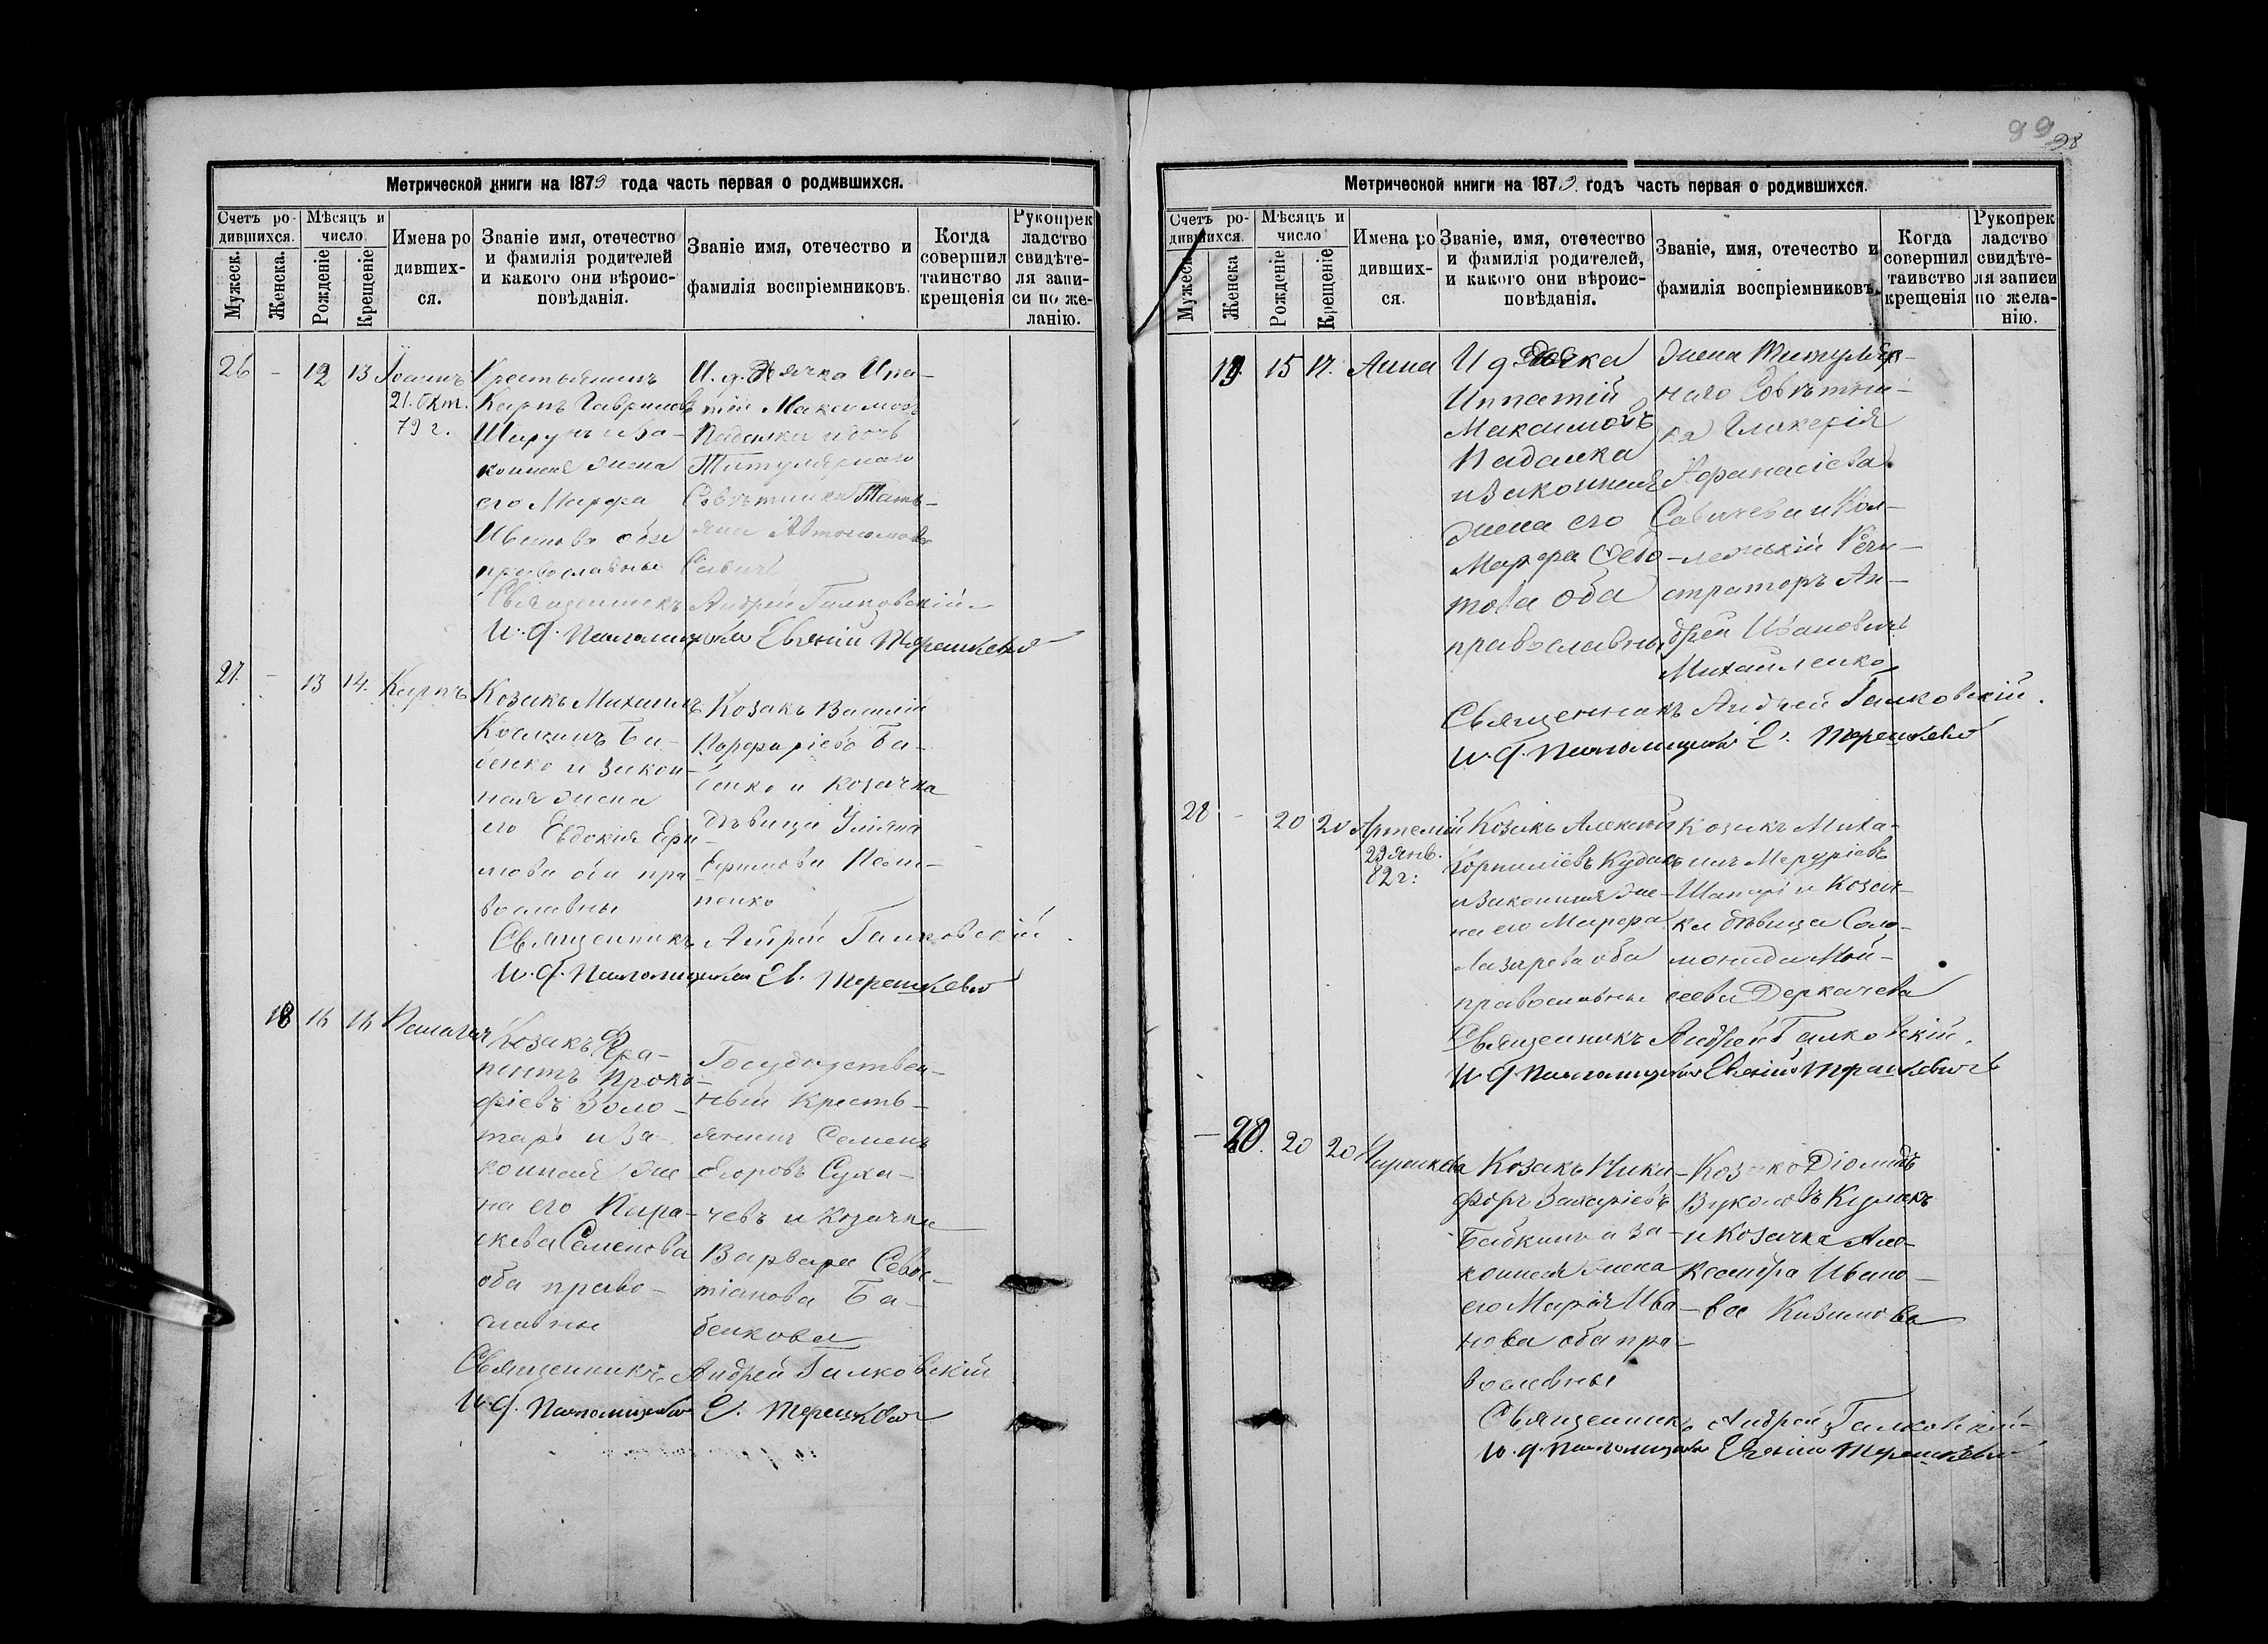 Метрической книги на 1879 года часть первая о родившихся.
Счетъ ро-
дившихся.
Мѣсяцъ и
число.
Мужеск.
Женска.
Рожденіе
Крещеніе
Имена ро
дивших-
ся.
Званіе имя, отечество
и фамилія родителей
и какого они вѣроис-
повѣданія.
Званіе имя, отечество и
фамилія воспріемниковъ.
Когда
совершил
таинство
крещенія
Рукопрек
ладство
свидѣте-
ля запи-
си по же-
ланію.
26 - 12 13 Іоаннъ
21. Окт.
79 г.
Крестьянинъ
Карпъ Гавриловъ
и За-
конная жена
его Марфа
Иванова оба
православны
И. д. Дячка Ипа-
тій Максимовъ
Падалка и дочь
Титулярнаго
Совѣтника Тать-
яна Автономова
Савичъ
Священникъ Андрей Галковскій
И. д. Псаломщика Евгеній Терешкевич
27. - 13 14. Карпъ
Козакъ Михаилъ
Косминъ Ба-
бенко и закон-
ная жена
его Евдокія Ефи-
мова оба пра
вославны
Козакъ Василій
Порфиріевъ Ба-
бенко и козачка
дѣвица Уліяна
Ефимова
Священникъ Андрей Галковскій.
И. д. Псаломщика Ев. Терешкевич
18 16 16 Пелагія
Козакъ Фера-
понтъ Проко-
фіевъ Золо-
тарь и За-
конная же
на его Пара-
скева Семенова
оба право-
славны
Государствен-
ный кресть-
янинъ Семенъ
Егоровъ Суха-
чевъ и Козачка
Варвара Севас-
тіанова Ба-
бенкова
Священникъ Андрей Галковскій
И. д. Псаломщика Е. Терешкевич
99
98
Метрической книги на 1879. годъ часть первая о родившихся.
Счетъ ро-
дившихся.
Мѣсяцъ и
число
Мужеск
Женска
Рожденіе
Крещеніе
Имена ро
дивших-
ся.
Званіе, имя, отечество
и фамилія родителей,
и какого они вѣроис-
повѣданія.
Званіе, имя, отечество и
фамилія воспріемниковъ.
Когда
совершил
таинство
крещенія
Рукопрек
ладство
свидѣте-
ля записи
по жела-
нію.
19. 15 17. Анна
И д Дячка
Ипатій
Максимовъ
Падалка
и Законная
жена его
Марфа Федо-
това оба
православны
жена Титуляр-
наго Совѣтни-
ка Гликерія
Афанасіева
Савичева и Кол-
лежскій Реги-
стратор Ан-
дрей Ивановичъ
Михайленко
Священникъ Андрей Галковскій.
И. д. Псаломщика Е. Терешкевич
28 - 20 20 Артемій
29 янв.
82 г:
Козакъ Алексѣй
Корниліевъ Кудакъ
и Законная же-
на его Марфа
Лазарева оба
православны
Козакъ Миха-
илъ Меркуріевъ
Шапарь и Козач-
ка дѣвица Соло-
монида Мой-
сеева Деркачева
Священникъ Андрей Галковскій.
И. д. Псаломщика Евгеній Терешкевичъ
- 20. 20 20
Козакъ Ники-
форъ Захаріевъ
Бабкинъ и за-
конная жена
его Марія Ива-
нова оба пра-
вославны
Козакъ Діомидъ
Вуколовъ Кулакъ
и Козачка Але-
ксандра Ивано-
ва
Священникъ Андрей Галковскій
И. д. Псаломщика Евгеній Терешкевич